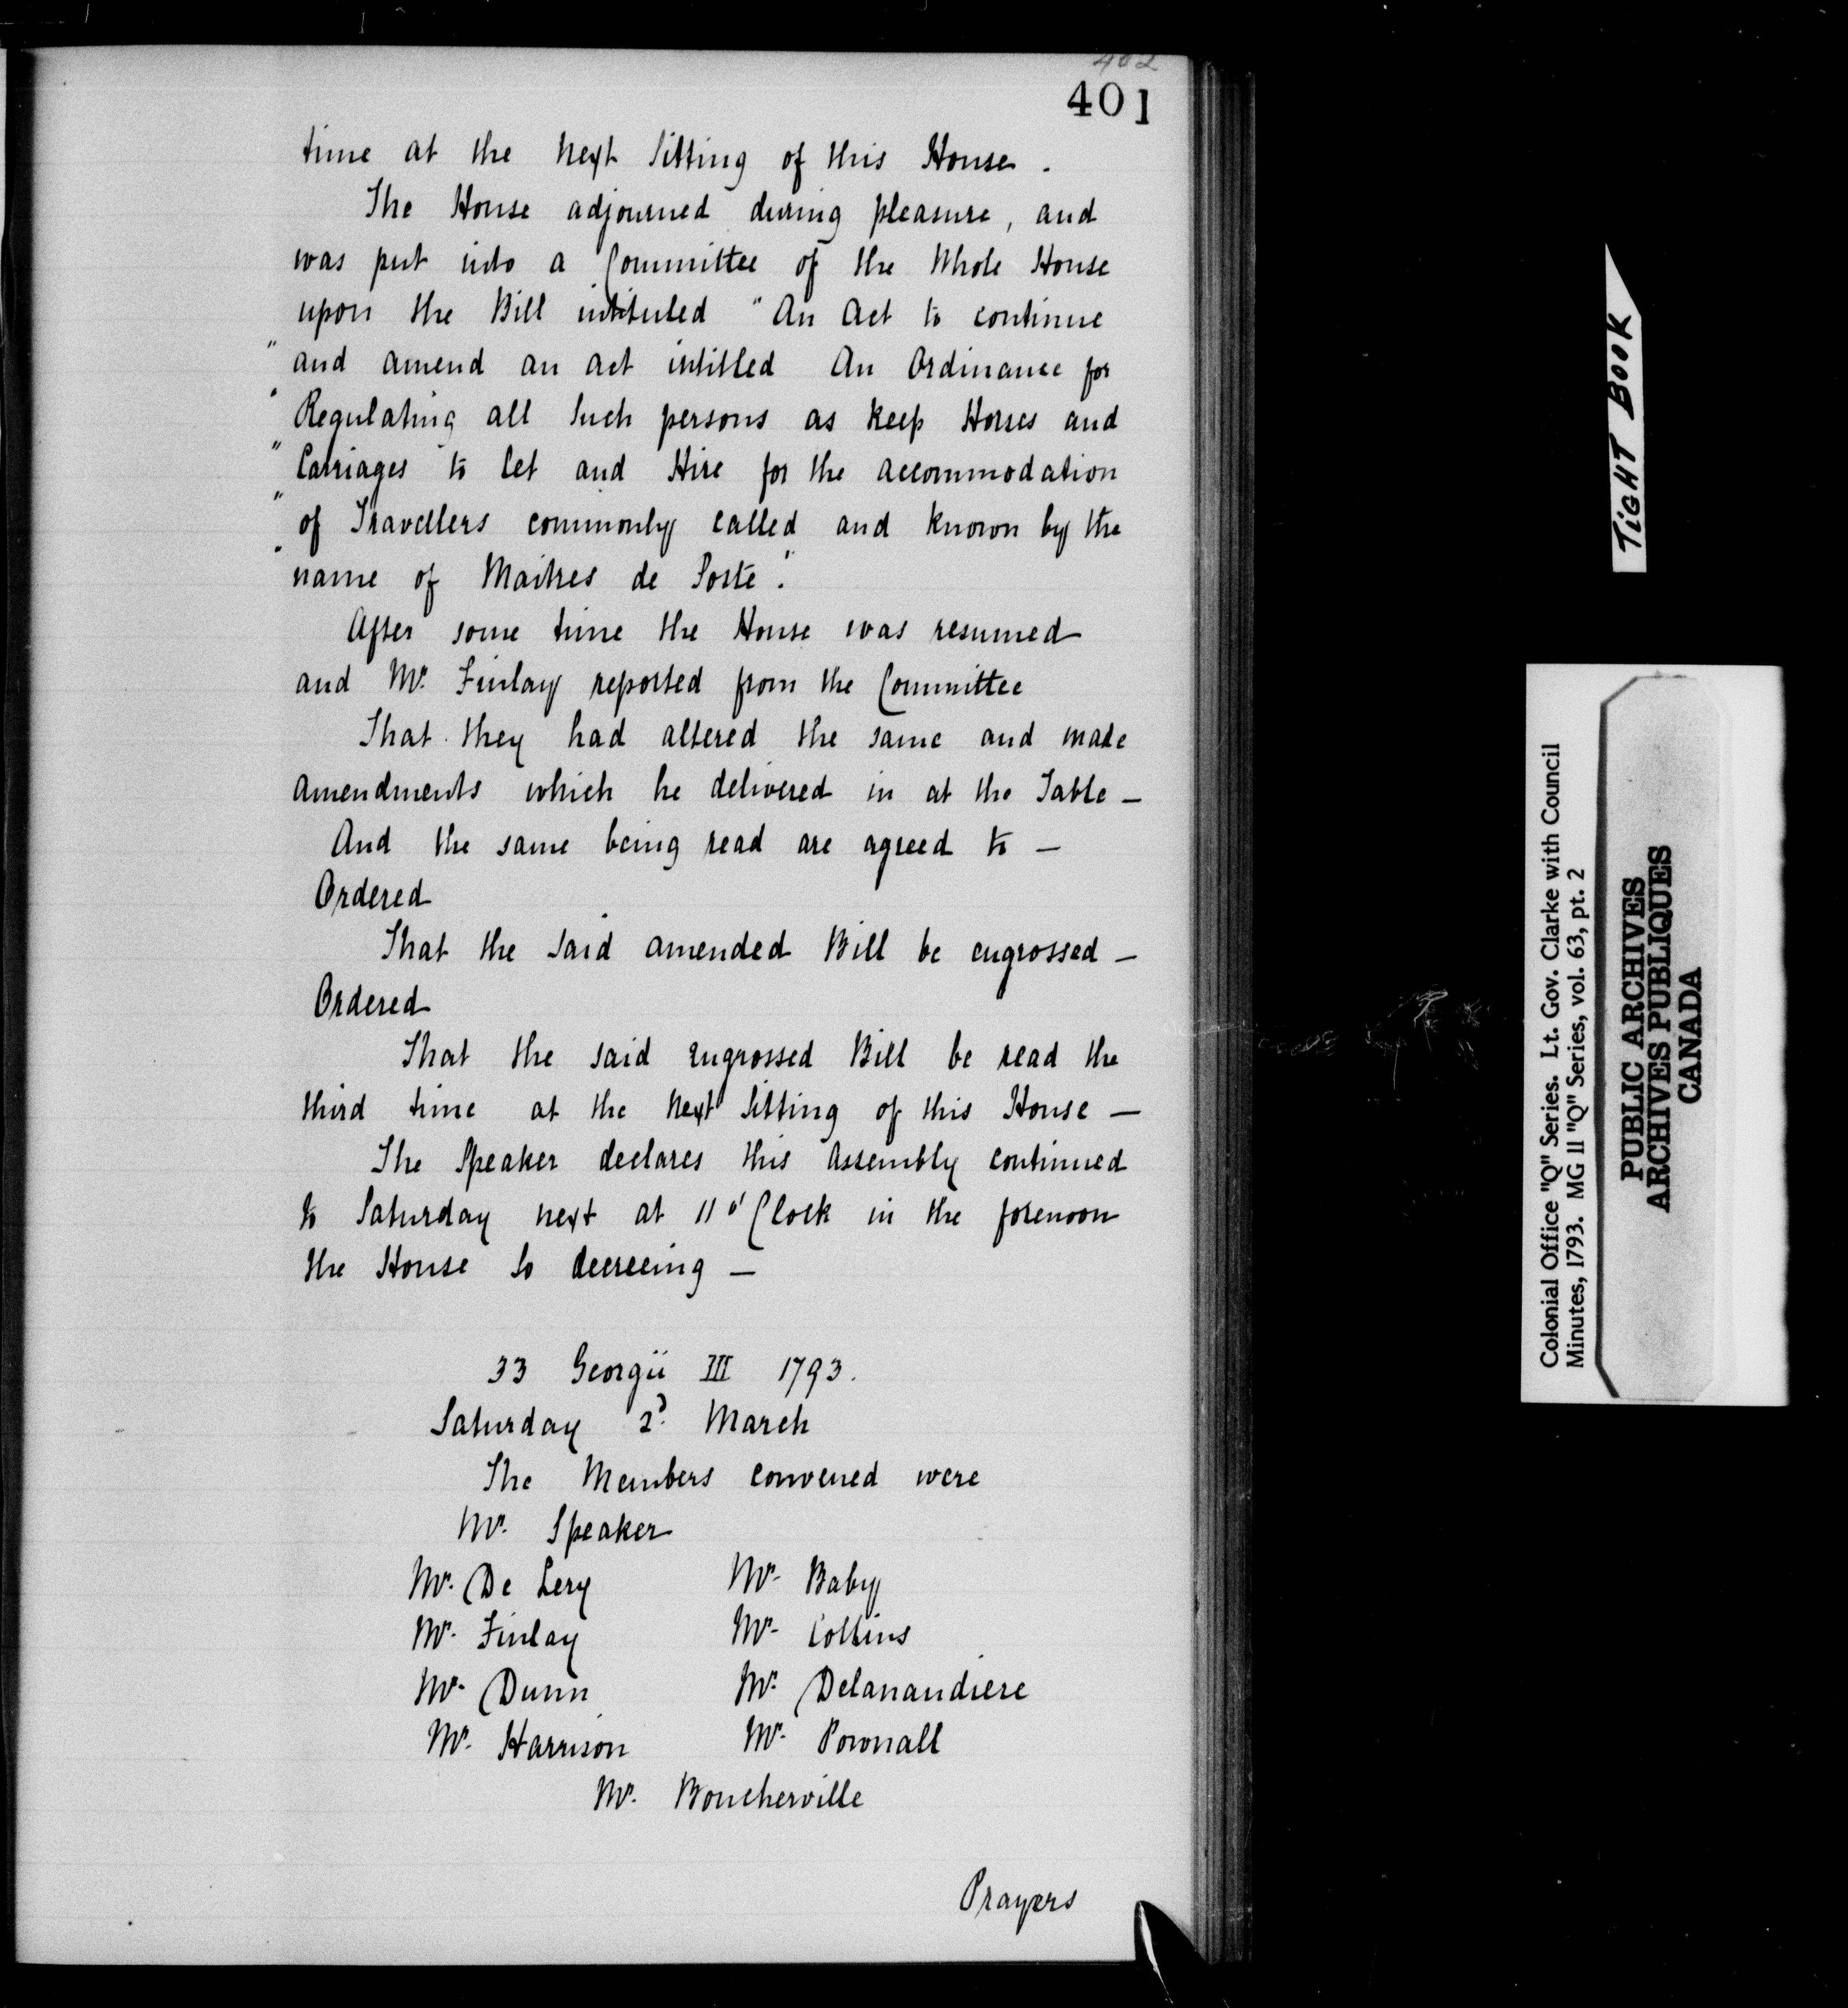 402
401
time at the next Sitting of this House.
The House adjourned during pleasure, and
was put into a Committee of the Whole House
upon the Bill intituled "An Act to continue
" and amend an act intitled An Ordinance for
" Regulating all Such persons as keep Horses and
" Carriages to let and Hire for the accommodation
" of Travellers commonly called and known by the
" name of Maitres de Poste".
After some time the House was resumed
and Mr. Finlay reported from the Committee
That they had altered the same and made
amendments which he delivered in at the Table —
And the same being read are agreed to —
Ordered
That the Said amended Bill be engrossed —
Ordered
That the said engrossed Bill be read the
third time at the next Sitting of this House —
The Speaker declares this Assembly continued
to Saturday next at 11 o'Clock in the forenoon
the House So decreeing —
33 Georgii III 1793.
Saturday 2d. March
The Members convened were
Mr. Speaker
Mr. De Lery Mr. Baby
Mr. Finlay Mr. Collins
Mr. Dunn Mr. Delanaudiere
Mr. Harrison Mr. Pownall
Mr. Boucherville
Prayers
TIGHT BOOK
Colonial Office "Q" Series. Lt. Gov. Clarke with Council
Minutes, 1793. MG 11 "Q" Series, vol. 63, pt. 2
PUBLIC ARCHIVES
ARCHIVES PUBLIQUES
CANADA